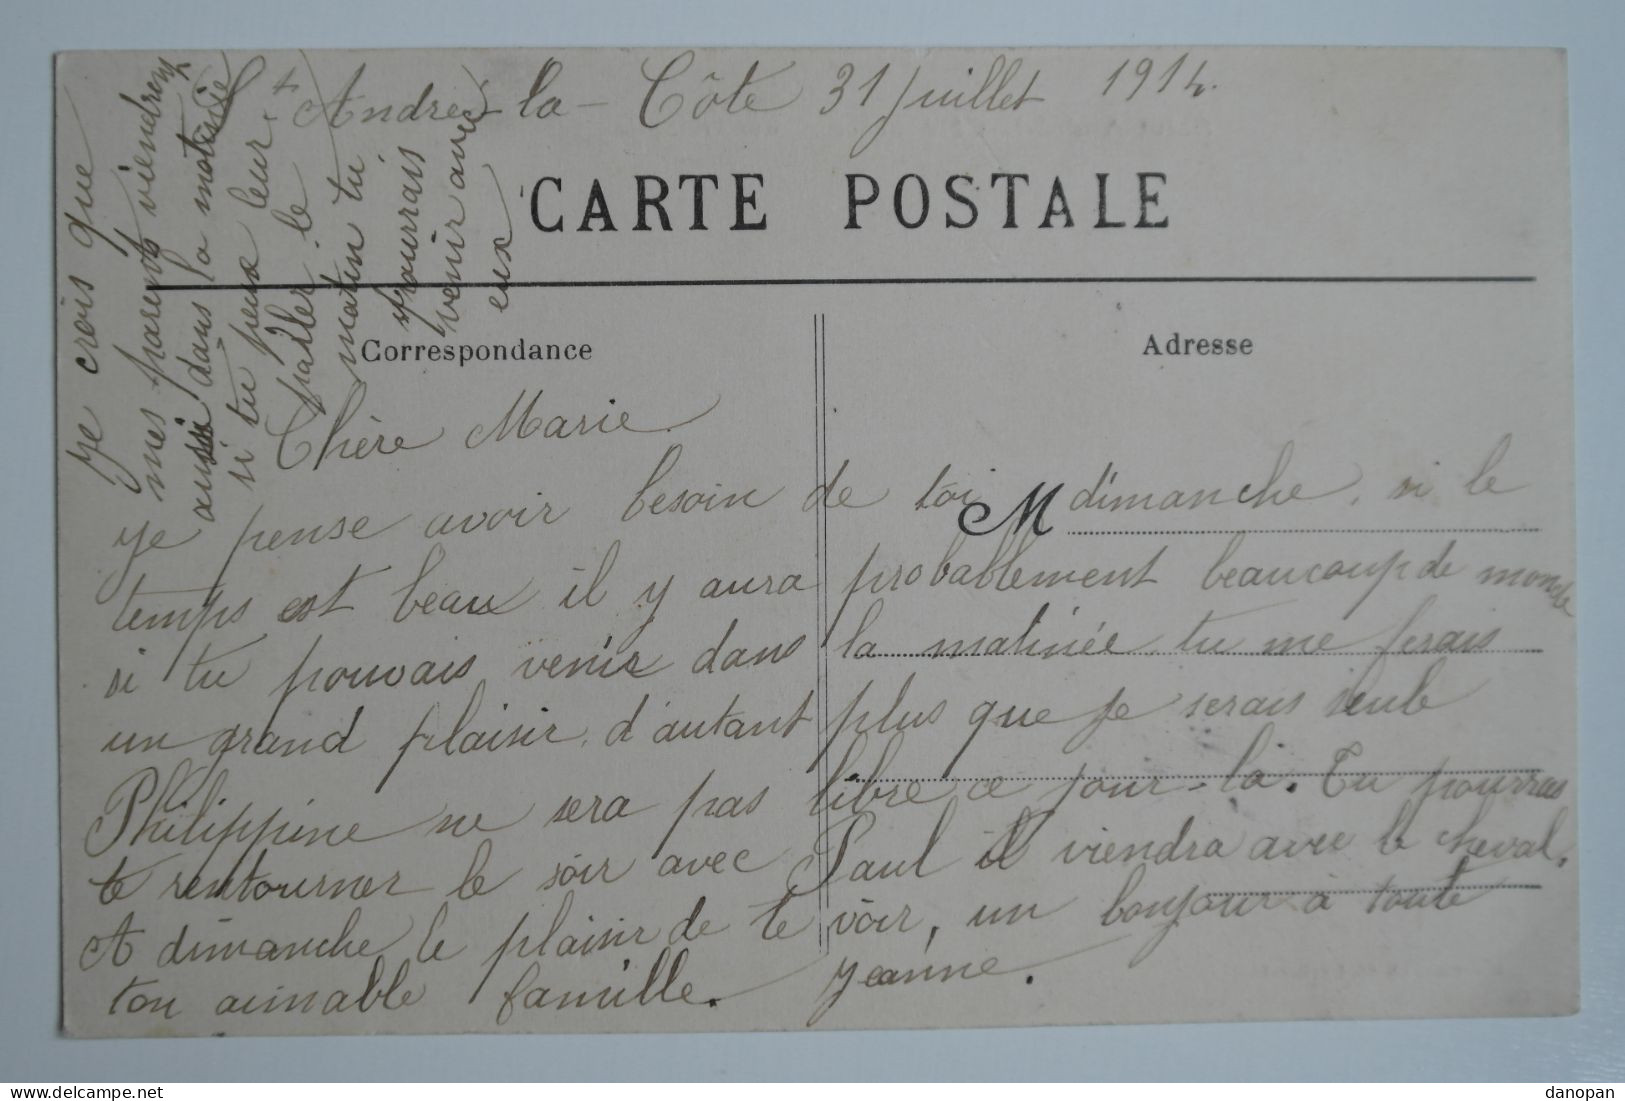 St Andre-la-Côte 31 Juillet 1914.
CARTE POSTALE
Correspondance
Adresse
Chère Marie.
Je pense avoir besoin de toi M dimanche, si le
temps est beau il y aura probablement beaucoup de monde
si tu pouvais venir dans la matinée tu me ferais
un grand plaisir, d'autant plus que je serais seule
Philippine ne sera pas libre ce jour-là. Tu pourras
te rentourner le soir avec Paul il viendra avec le cheval.
A dimanche le plaisir de te voir, un bonjour à toute
ton aimable famille. Jeanne.
Je crois que
mes parents viendront
aussi dans la matinée
si tu peux leur
parler le
matin tu
pourrais
venir avec
eux
danopan